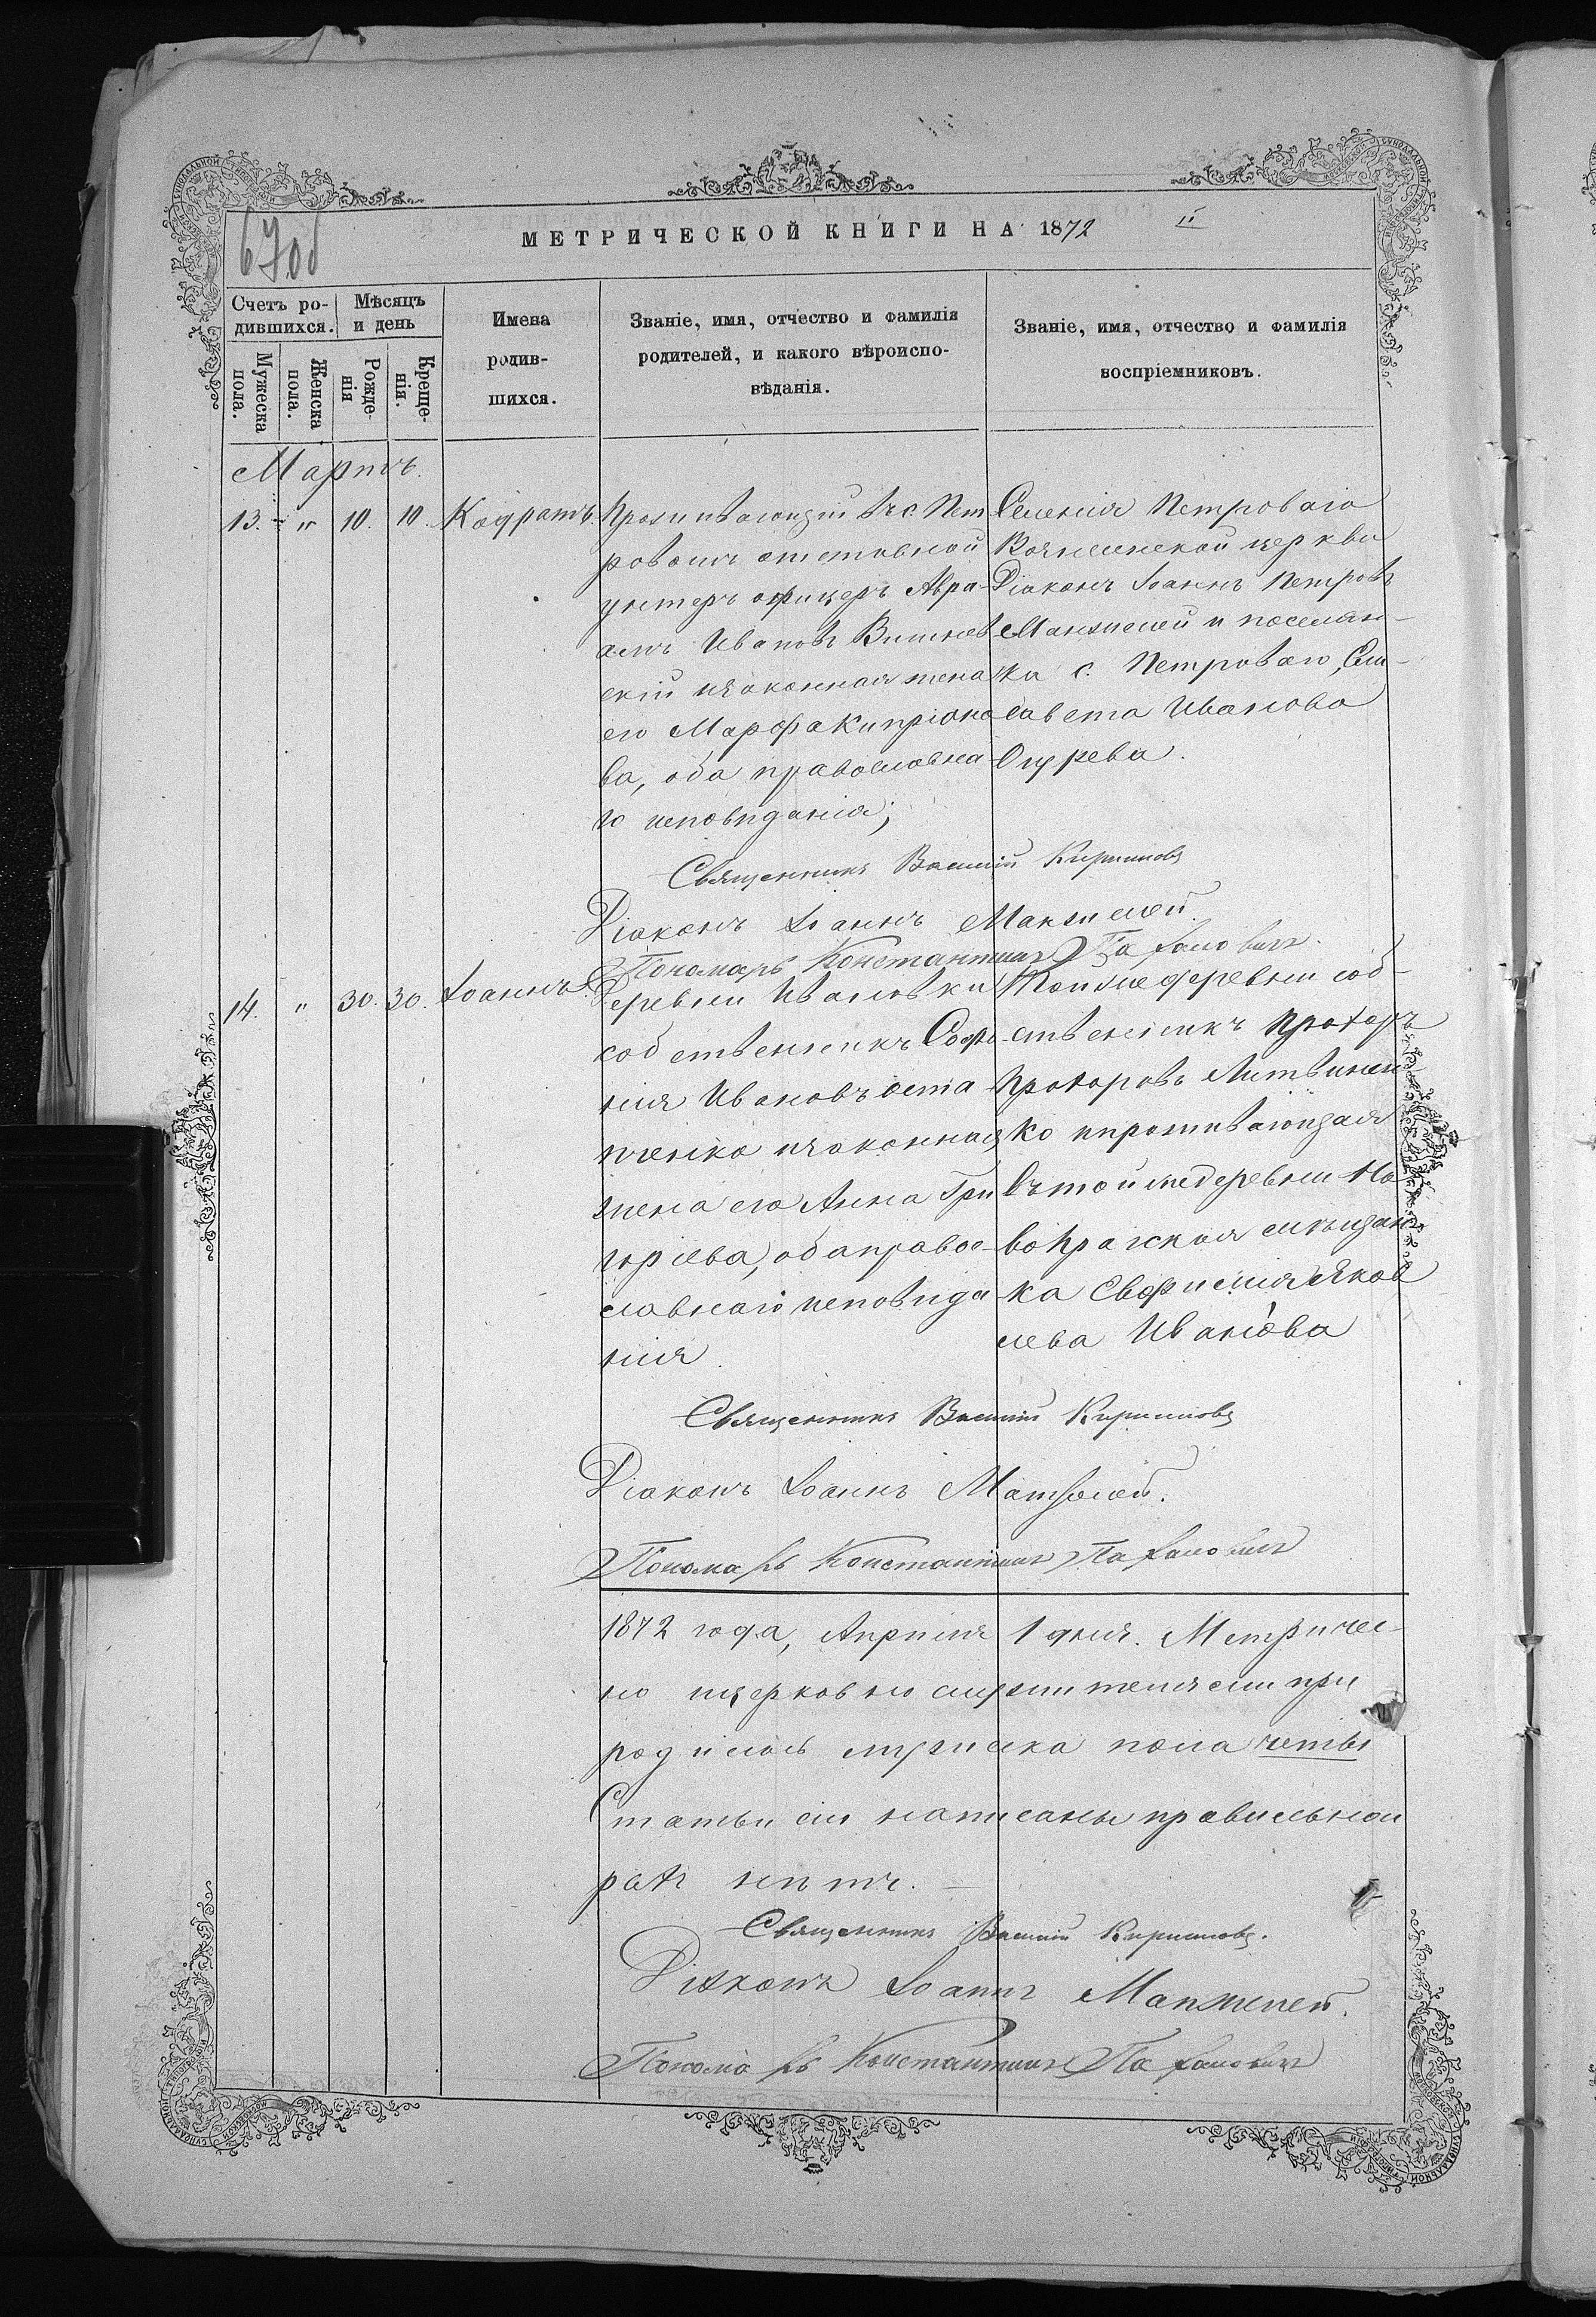 67об
МЕТРИЧЕСКОЙ КНИГИ НА 1872
Счетъ ро-
дившихся.
Мѣсяцъ
и день
Мужеска
пола.
Женска
пола.
Рожде-
нія
Креще-
нія.
Имена
родив-
шихся.
Званіе, имя, отчество и фамилія
родителей, и какого вѣроиспо-
вѣданія.
Званіе, имя, отчество и фамилія
воспріемниковъ.
Мартъ.
13. - " 10. 10. Кодратъ.
Проживающій въ с. Пет
ровомъ отставной
унтеръ офицеръ Авра-
амъ Ивановъ Вишнев
скій и законная жена
его Марфа Кипріяно
ва, оба православна
го исповѣданія;
Селенія Петроваго
Вознесенской церкви
Діаконъ Іоаннъ Петровъ
Манжелей и поселян-
ка с. Петроваго, Ели-
савета Иванова
Огурева.
Священникъ Василій Кириловъ
Діаконъ Іоаннъ Манжелей.
Пономарь Константинъ
14. " 30. 30. Іоаннъ.
Деревни Ивановки
собственникъ Софо
нія Ивановъ Оста
пченко и законная
жена его Анна Гри
горіева, оба правос-
лавнаго исповѣда
нія.
Той же деревни соб-
ственникъ Прохоръ
Прохоровъ Литвинен-
ко и проживающая
въ той же деревни Но
вопрагская мѣщан
ка Евфимія Яков
лева Иванова
Священникъ Василій Кириловъ
Діаконъ Іоаннъ Манжелей.
Пономарь Константинъ
1872 года, Апрѣля 1 дня.
родилось мужеска пола четы
Статьи сіи написаны правильно и
расъ нѣтъ. —
Священникъ Василій Кириловъ.
Діаконъ Іоаннъ Манжелей.
Пономарь Константинъ